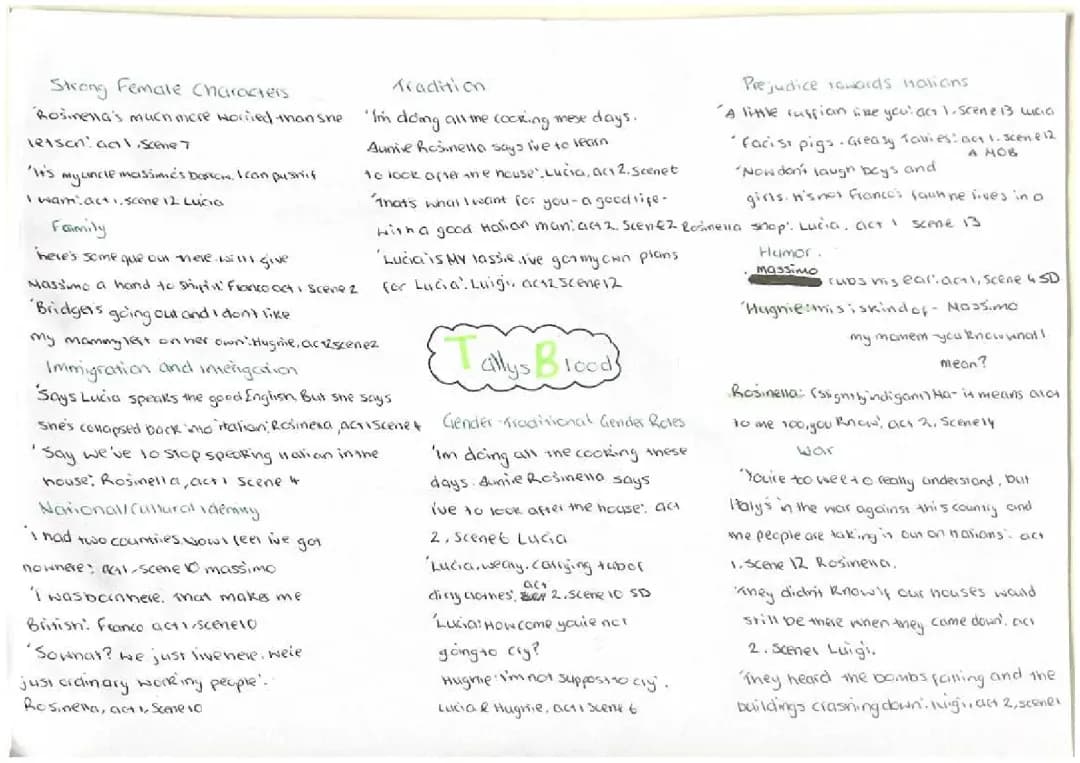 Strong Female Characters
'Rosinella's much more worried than she
lets on'. act 1, scene 7
'It's my uncle massimo's barrow, I can push it if
I want'. act 1, scene 12 Lucia
Family
'here's some que out there. Will I give
Massimo a hand to shift it' Franco act 1 scene 2
'Bridget's going out and I don't like
my mammy left on her own'. Hughie, act 2 scene 2
Immigration and intergration
'Says Lucia speaks the good English. But she says
she's collapsed back into Italian'. Rosinella, act 1 scene 4
'Say we've to stop speaking Italian in the
house'. Rosinella, act 1 scene 4
National/Cultural identity
'I had two countries. Now I feel I've got
nowhere'. act 1, scene 10 massimo
'I was born here. That makes me
British'. Franco act 1, scene 10
'So what? We just live here. We're
just ordinary working people'.
Rosinella, act 1, scene 10
Tradition
'I'm doing all the cooking these days.
Auntie Rosinella says I've to learn
to look after the house'. Lucia, act 2, scene 6
'That's what I want for you - a good life -
with a good Italian man'. act 2, scene 2 Rosinella
'Lucia is MY lassie. I've got my own plans
for Lucia'. Luigi, act 2 scene 12
Tallys Blood
Gender - Traditional Gender Roles
'Im doing all the cooking these
days. Auntie Rosinella says
I've to look after the house'. act
2, scene 6 Lucia
'Lucia, weary, carrying tub of
dirty clothes'. act 2, scene 10 SD
'Lucia: How come you're not
going to cry?
Hughie: I'm not suppost to cry'.
Lucia & Hughie, act 1 scene 6
Prejudice towards Italians
'A little ruffian like you'. act 1, scene 13 Lucia
'Facist pigs. Greasy Tallies'. act 1, scene 12
A MOB
'Now don't laugh boys and
girls. It's not Franco's fault he lives in a
shop'. Lucia. act 1 scene 13
Humor.
massimo rubs his ear'. act 1, scene 4 SD
'Hughie: this is kind of - Massimo
my moment - you know what I
mean?
Rosinella: (slightly indigant) Ha - it means alot
to me too, you know'. act 2, scene 14
War
'You're to wee to really understand, but
Italy's in the war against this country and
the people are taking it out on Italians'. act
1, scene 12 Rosinella.
'They didn't know if our houses would
still be there when they came down'. act
2, scene 1 Luigi.
'They heard the bombs falling and the
buildings crashing down'. Luigi, act 2, scene 1